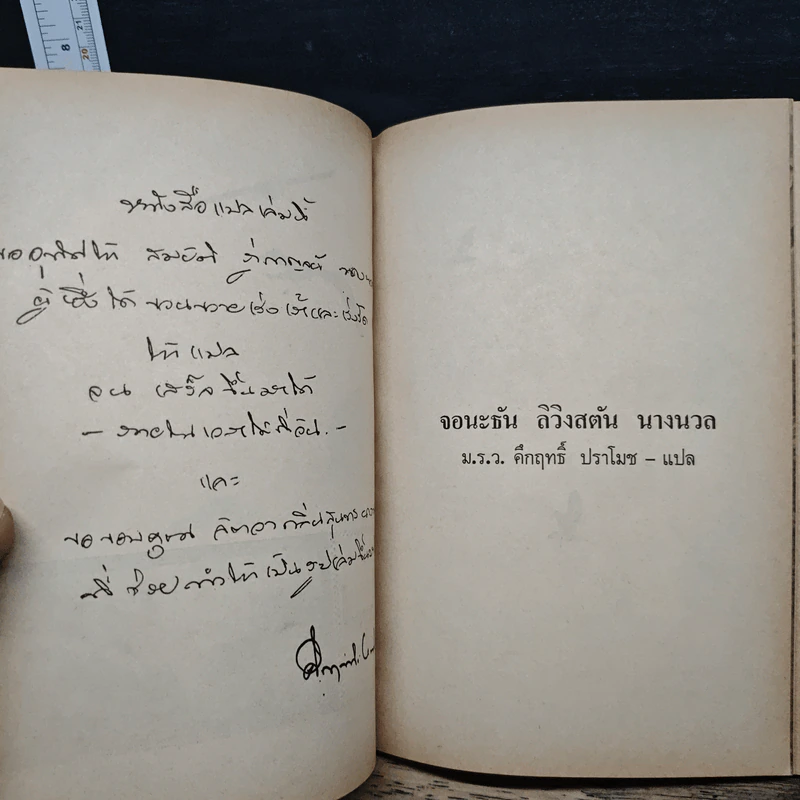 หนังสือแปลเล่มนี้
ขออุทิศให้ สมบัติ ภู่กาญจน์
ผู้ซึ่งได้ ขวนขวายเร่งเร้าและเร่งรัด
ให้แปล
จน เสร็จขึ้นมาได้
– ภายในเวลาไม่กี่วัน. –
และ
ขอขอบคุณ
ที่ ช่วย ทำให้ เป็นรูปเล่มขึ้นมา
จอนะธัน ลิวิงสตัน นางนวล
ม.ร.ว. คึกฤทธิ์ ปราโมช – แปล
8
21
20